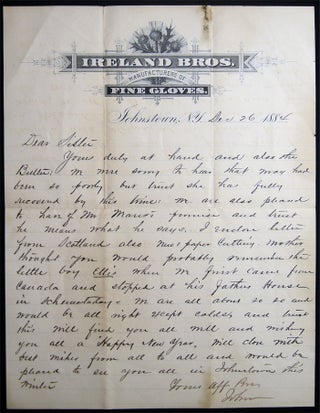 IRELAND BROS.
MANUFACTURERS OF
FINE GLOVES.
Johnstown, N.Y. Dec 26 1884
Dear Sister
Yours duly at hand and also the
Butter: we were sorry to hear that may had
been so poorly but trust she has fully
recovered by this time: we are also pleased
to hear of Mr promise and trust
he means what he says. I enclose letter
from Scotland also news paper Cutting. mother
thought you would probably remember the
little boy Ellis when we first came from
Canada and stopped at his fathers House
in Schenectady: we are all about so so and
would be all right except colds and trust
this will find you all well and wishing
you all a Happy New Year, will close with
best wishes from all to all and would be
pleased to see you all in Johnstown this
Winter
Yours Aff Bro
John